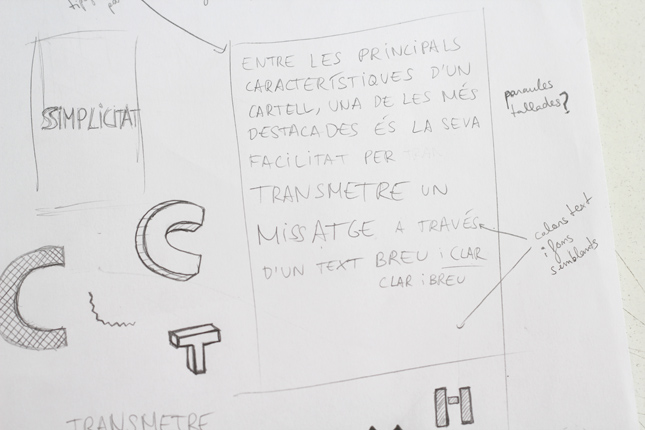 SSIMPLICITAT
ENTRE LES PRINCIPALS
CARACTERÍSTIQUES D'UN
CARTELL, UNA DE LES MÉS
DESTACADES ÉS LA SEVA
FACILITAT PER TRAN
TRANSMETRE UN
MISSATGE A TRAVÉS
D'UN TEXT BREU I CLAR
CLAR I BREU
paraules
tallades?
i fons
semblants
C
C
T
H
TRANSMETRE